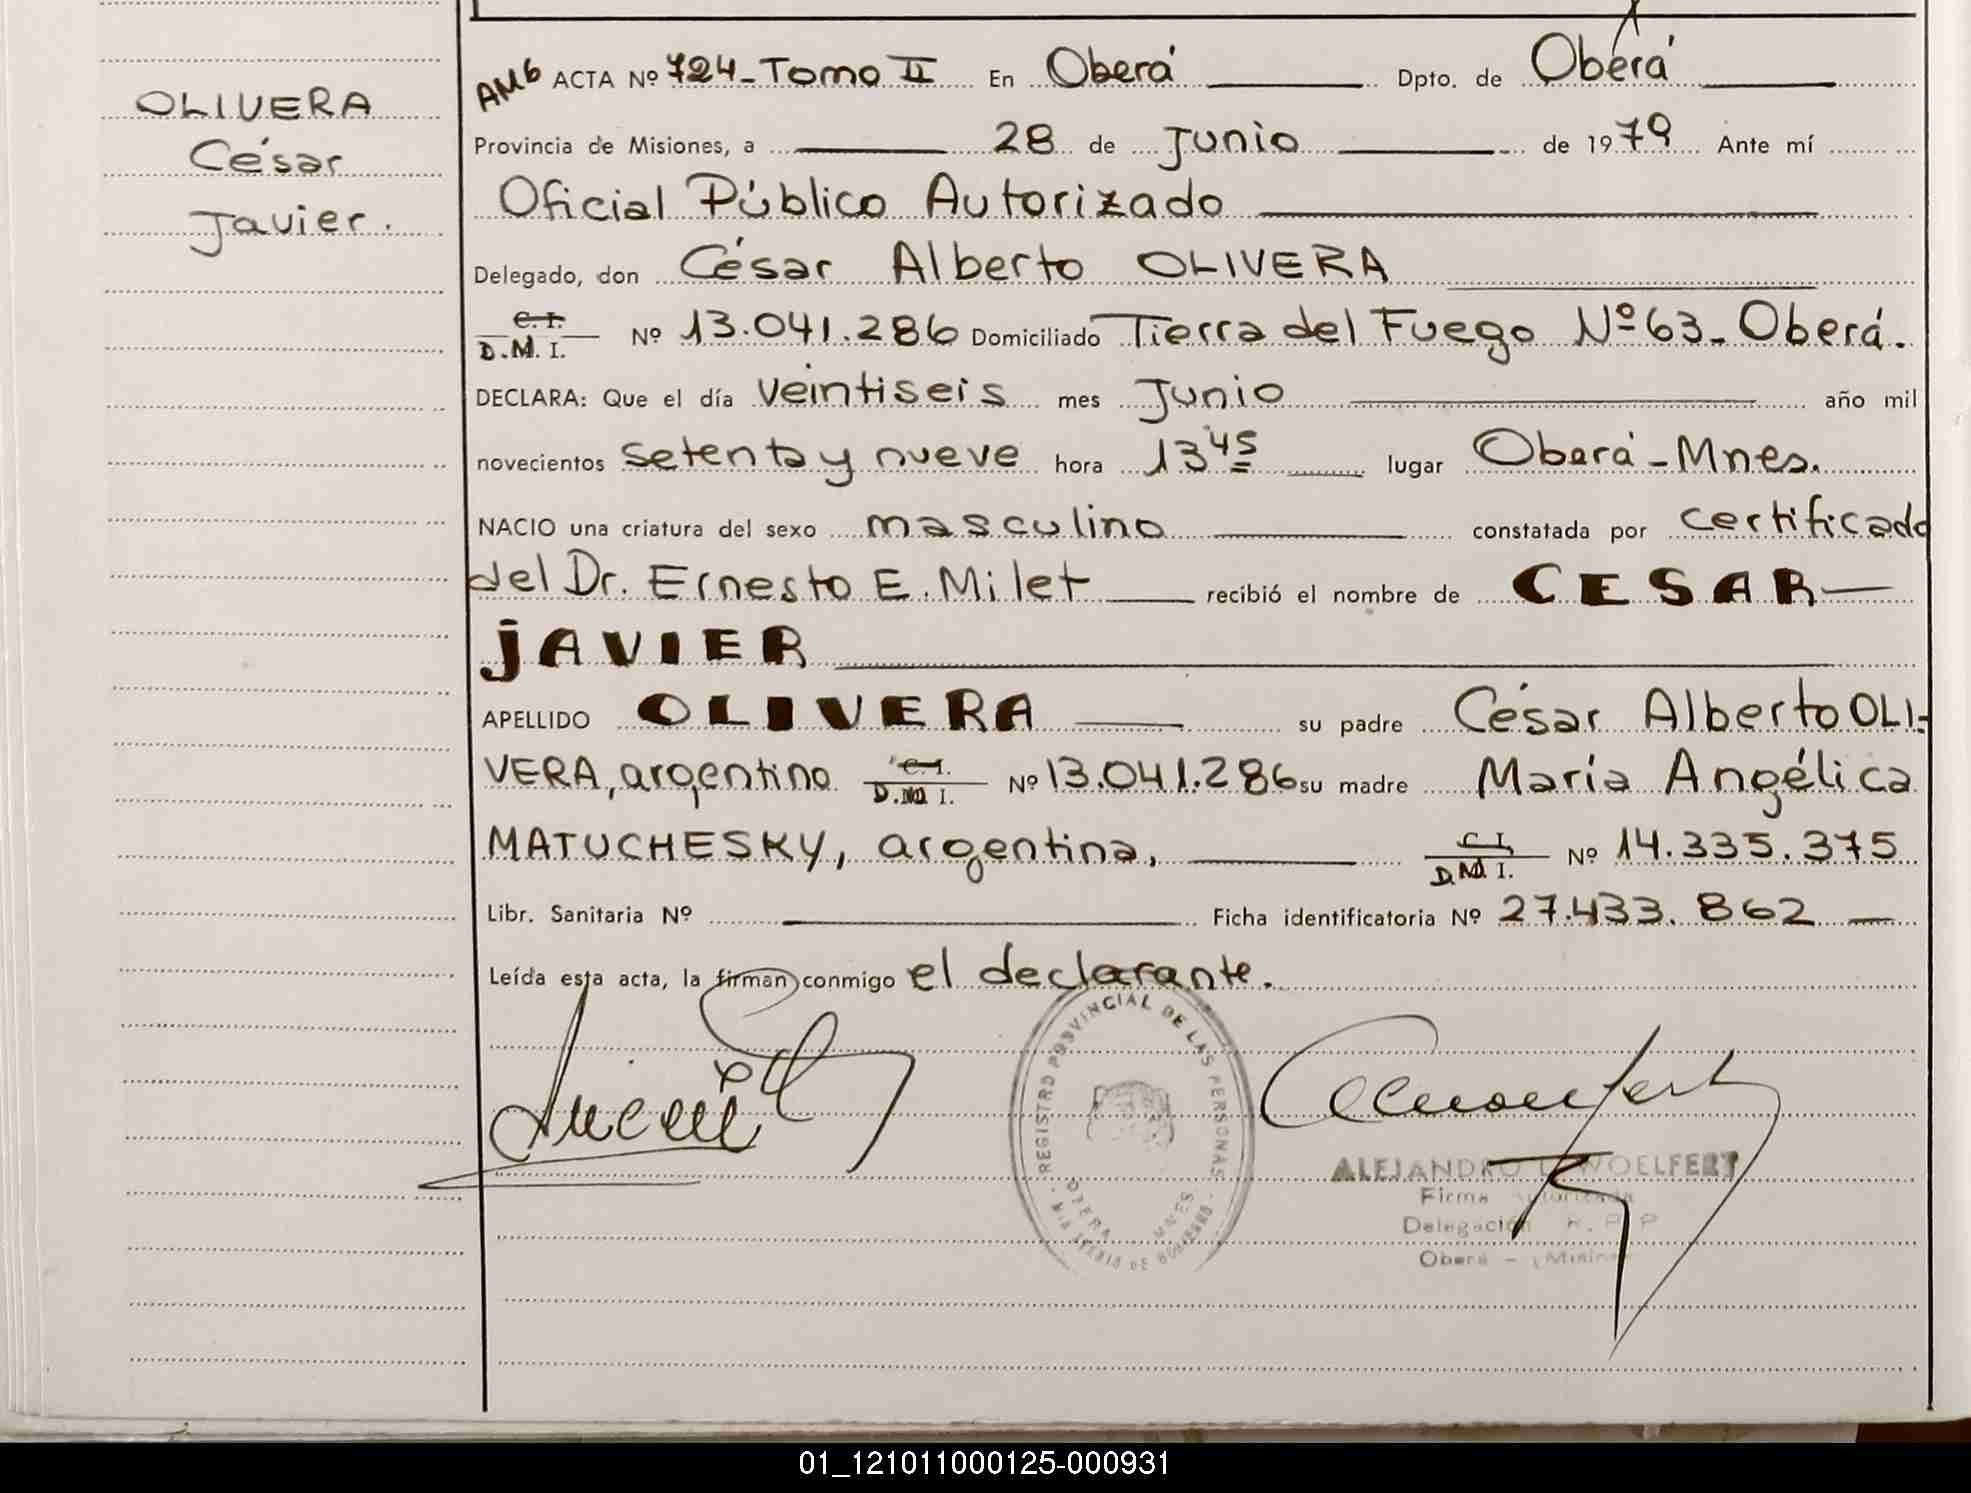 OLIVERA
César
Javier.
AMG ACTA Nº 724 - Tomo II En Oberá Dpto. de Oberá
Provincia de Misiones, a 28 de Junio de 1979 Ante mí
Oficial Público Autorizado
Delegado, don César Alberto OLIVERA
C.I. D.M.I. Nº 13.041.286 Domiciliado Tierra del Fuego Nº 63 - Oberá.
DECLARA: Que el día veintiseis mes Junio año mil
novecientos setenta y nueve hora 13 45 lugar Oberá - Mnes.
NACIO una criatura del sexo masculino constatada por certificado
del Dr. Ernesto E. Milet recibió el nombre de CESAR
JAVIER
APELLIDO OLIVERA su padre César Alberto OLI-
VERA, argentino C.I. D.M.I. Nº 13.041.286 su madre María Angélica
MATUCHESKY, argentina, C.I. D.M.I. Nº 14.335.375
Libr. Sanitaria Nº Ficha identificatoria Nº 27.433.862
Leída esta acta, la firman conmigo el declarante.
REGISTRO PROVINCIAL DE LAS PERSONAS
OBERA MNES
MINISTERIO DE GOBIERNO
ALEJANDRO WOELFERT
Firma Autorizada
Delegación R. P. P
Oberá - Misiones
01_121011000125-000931